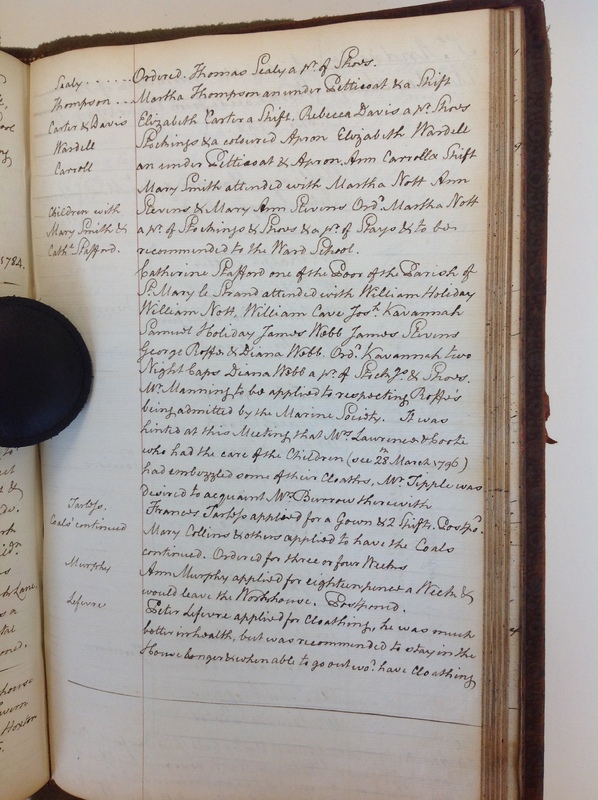 Sealy . . . . . . Ordered. Thomas Sealy a pr. of Shoes.
Thompson . . . Martha Thompson an under Petticoat & a Shift
Carter & Davis Elizabeth Carter a Shift. Rebecca Davis a pr. Shoes
Wardell Stockings & a coloured Apron Elizabeth Wardell
Carroll an under Petticoat & Apron. Ann Carroll a Shift
Mary Smith attended with Martha Nott Ann
Children with Stevens & Mary Ann Stevens Ordd. Martha Nott
Mary Smith & a pr. of Stockings & Shoes & a pr. of Stays & to be
Cathe. Stafford. recommended to the Ward School.
Catherine Stafford one of the Poor of the Parish of
St. Mary le Strand attended with William Holiday
William Nott. William Cave Josh. Kavannah
Samuel Holiday James Webb James Stevens
George Roffe & Diana Webb. Ordd. Kavannah two
Night Caps Diana Webb a pr. of Stockgs. & Shoes.
Mr. Manning to be applied to respecting Roffe's
being admitted by the Marine Society. It was
hinted at this Meeting that Mrs. Lawrence & Cooke
who had the care of the Children (see 28th March 1796)
had embezzled some of their Cloaths, Mr. Tipple was
desired to acquaint Mr. Burrow therewith
Tarless. Frances Tarless applied for a Gown & 2 Shifts. Postpd.
Coals continued Mary Collins & others applied to have the Coals
continued. Ordered for three or four Weeks
Murphy Ann Murphy applied for eighteen pence a Week &
would leave the Workhouse. Postponed.
Lefevre Peter Lefevre applied for Cloathing, he was much
better in health, but was recommended to stay in the
House longer & when able to go out wod. have Cloathing
1784.
Lane.
house
Hoxton